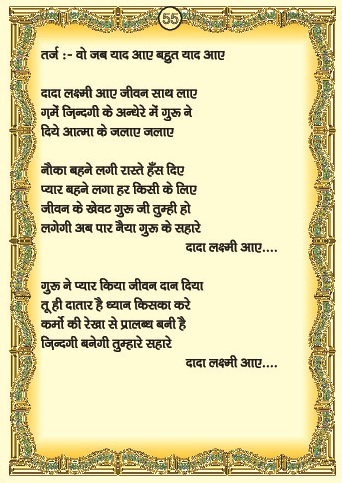 55
तर्ज :- वो जब याद आए बहुत याद आए
दादा लक्ष्मी आए जीवन साथ लाए
गमें ज़िन्दगी के अन्धेरे में गुरू ने
दिये आत्मा के जलाए जलाए
नौका बहने लगी रास्ते हँस दिए
प्यार बहने लगा हर किसी के लिए
जीवन के खेवट गुरू जी तुम्ही हो
लगेगी अब पार नैया गुरू के सहारे
दादा लक्ष्मी आए....
गुरू ने प्यार किया जीवन दान दिया
तू ही दातार है ध्यान किसका करे
कर्मो की रेखा से प्रालब्ध बनी है
ज़िन्दगी बनेगी तुम्हारे सहारे
दादा लक्ष्मी आए....